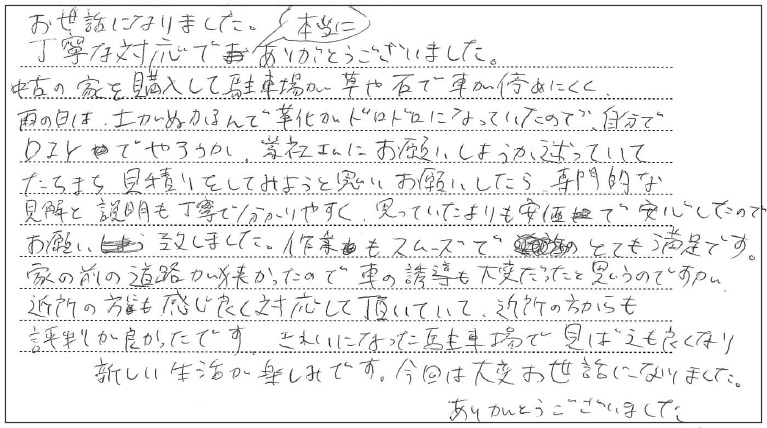 お世話になりました。
丁寧な対応で本当にありがとうございました。
中古の家を購入して駐車場が草や石で車が停めにくく、
雨の日は、土がぬかるんで革化がドロドロになっていたので、自分で
DIYでやろうか、業社さんにお願いしようか迷っていて
たちまち見積りをしてみようと思いお願いしたら、専門的な
見解と説明も丁寧で分かりやすく、思っていたよりも安価で安心したので
お願い致しました。作業もスムーズでとても満足です。
家の前の道路が狭かったので車の誘導も大変だったと思うのですが、
近所の方も感じ良く対応して頂いていて、近所の方からも
評判が良かったです。きれいになった駐車場で見ばえも良くなり
新しい生活が楽しみです。今回は大変お世話になりました。
ありがとうございました